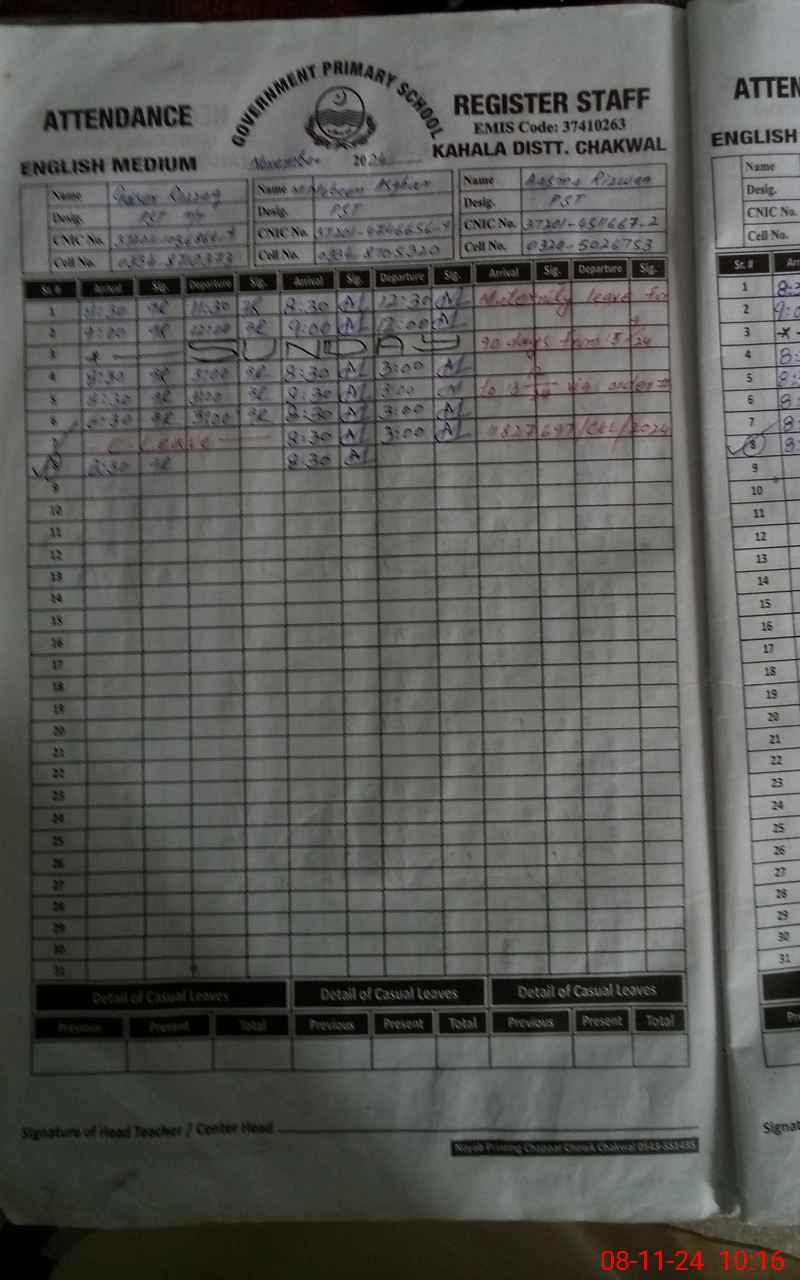 GOVERNMENT PRIMARY SCHOOL
ATTENDANCE REGISTER STAFF
EMIS Code: 37410263
ENGLISH MEDIUM November 2024 KAHALA DISTT. CHAKWAL
Name Name Name Aasma Rizwan
Desig. PST Desig. PST Desig. PST
CNIC No. CNIC No. CNIC No.
Cell No. Cell No. 0334-8705320 Cell No. 0320-5026753
Sr. # Arrival Sig. Departure Sig. Arrival Sig. Departure Sig. Arrival Sig. Departure Sig.
1 8:30 11:30 8:30 12:30 Maternity leave for
2 9:00 12:00 9:00 12:00
3 SUNDAY 90 days from
4 8:30 3:00 8:30 3:00
5 8:30 3:00 8:30 3:00 to order #
6 8:30 3:00 8:30 3:00
7 C-Leave 8:30 3:00
8 8:30 8:30
9
10
11
12
13
14
15
16
17
18
19
20
21
22
23
24
25
26
27
28
29
30
31
Detail of Casual Leaves Detail of Casual Leaves Detail of Casual Leaves
Previous Present Total Previous Present Total Previous Present Total
Signature of Head Teacher / Center Head
Nayab Printing Chappar Chowk Chakwal 0543-551435
ATTEN
ENGLISH
Name
Desig.
CNIC No.
Cell No.
Sr. # Arr
1 8:3
2 9:0
3
4 8:
5 8:
6 8:
7 8:
8 8:
9
10
11
12
13
14
15
16
17
18
19
20
21
22
23
24
25
26
27
28
29
30
31
Signat
08-11-24 10:16